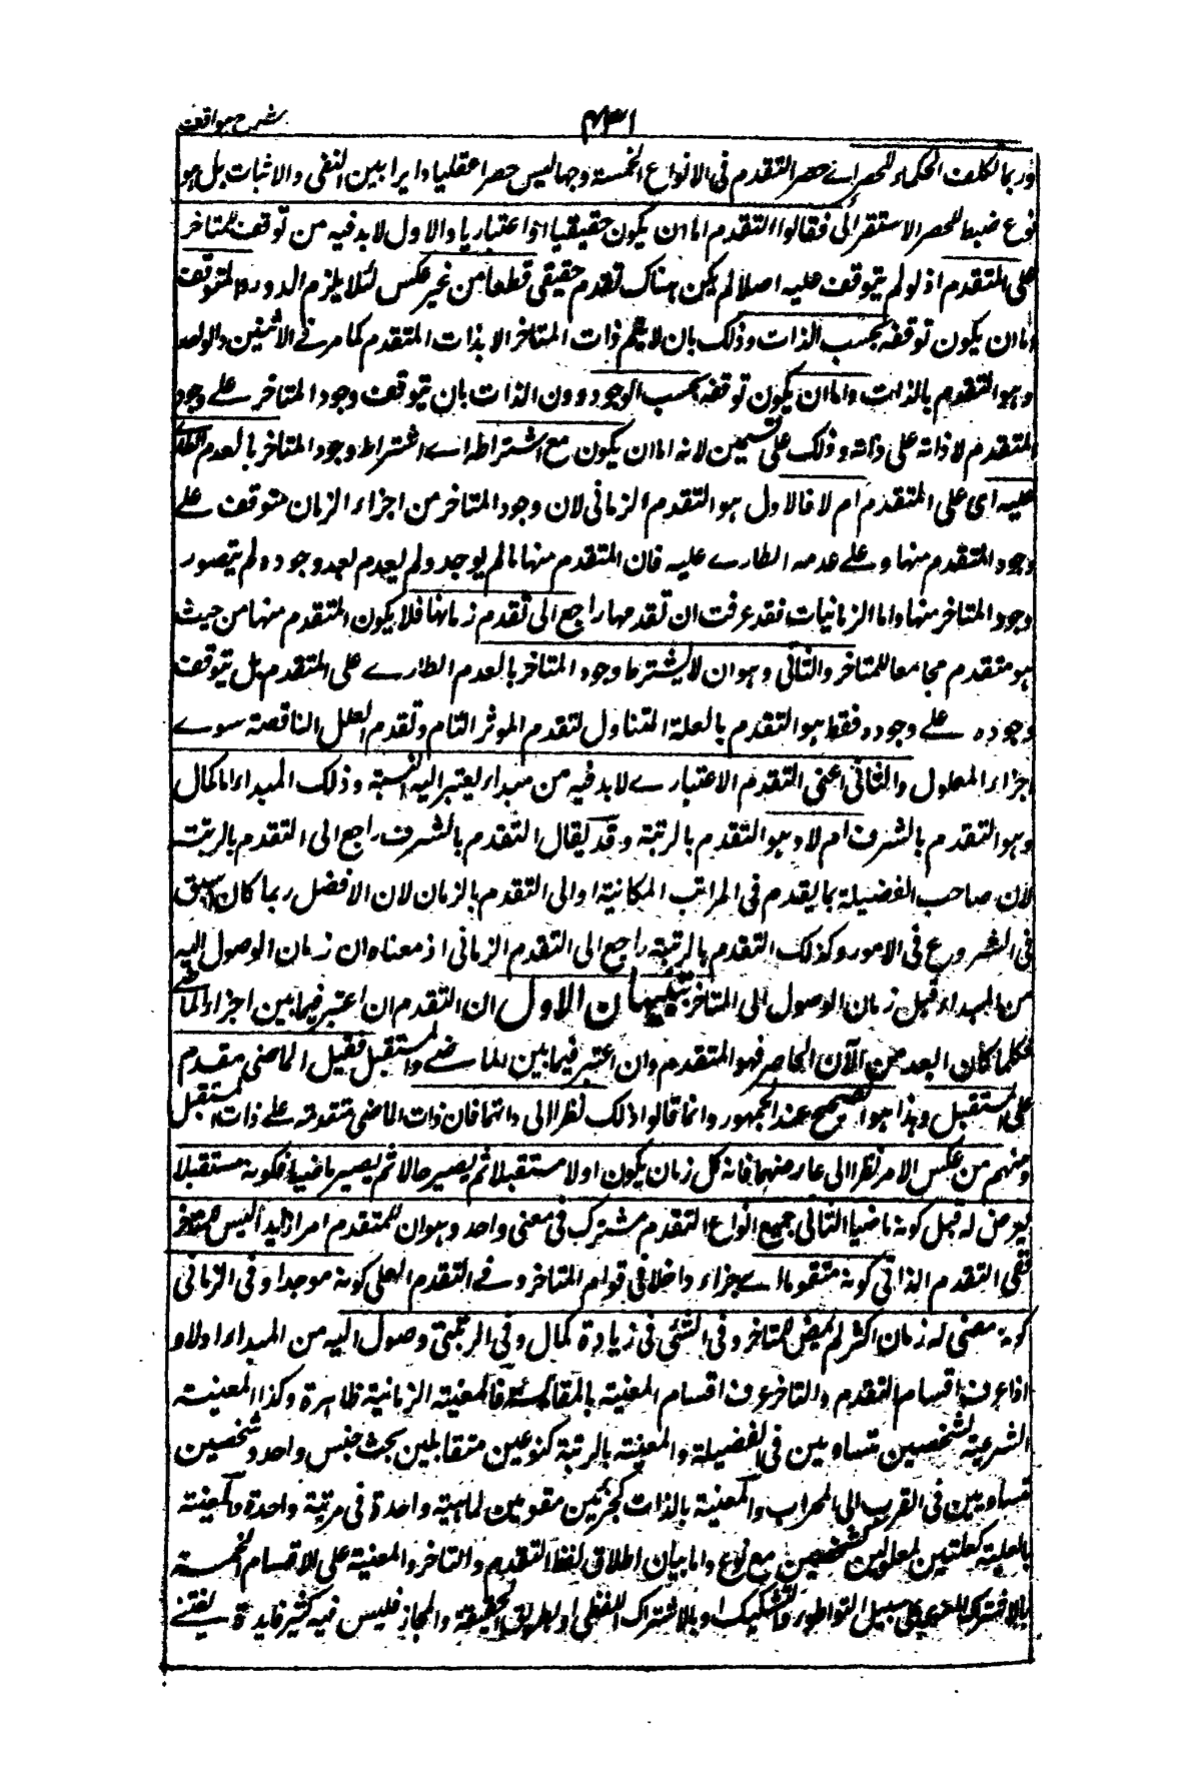 شرح مواقف
۴۳۱
وربما تكلف الحكماء للحصر اے حصر التقدم فى الانواع الخمسة وجها ليس حصرا عقليا دايرا بين النفى والاثبات بل هو
نوع ضبط للحصر الاستقرائى فقالوا التقدم اما ان يكون حقيقيا او اعتباريا والاول لا بد فيه من توقف للمتاخر
على المتقدم اذ لو لم يتوقف عليه اصلا لم يكن هناك تقدم حقيقى قطعا من غير عكس لئلا يلزم الدور والمتوقف
اما ان يكون توقفه بحسب الذات وذلك بان لا يتم ذات المتاخر الا بذات المتقدم كما مر فى الاثنين والواحد
وهو التقدم بالذات واما ان يكون توقفه بحسب الوجود دون الذات بان يتوقف وجود المتاخر علے وجود
المتقدم لا ذاته على ذاته وذلك على قسمين لانه اما ان يكون مع اشتراطه اے اشتراط وجود المتاخر بالعدم الطارے
عليه اى على المتقدم ام لا فالاول هو التقدم الزمانى لان وجود المتاخر من اجزاء الزمان متوقف علے
وجود المتقدم منها و علے عدمه الطارے عليه فان المتقدم منها ما لم يوجد ولم يعدم بعد وجوده لم يتصور
وجود المتاخر منها واما الزمانيات فقد عرفت ان تقدمها راجع الى تقدم زمانها فلا يكون المتقدم منها من حيث
هو متقدم مجامعا للمتاخر والثانى وهو ان لا يشترط وجود المتاخر بالعدم الطارے على المتقدم بل يتوقف
وجوده علے وجوده فقط هو التقدم بالعلة المتناول لتقدم الموثر التام وتقدم العلل الناقصة سوے
اجزاء المعلول والثانى اعنى التقدم الاعتبارے لا بد فيه من مبداء يعتبر اليه النسبة وذلك المبداء اما كمال
وهو التقدم بالشرف ام لا وهو التقدم بالرتبة وقد يقال التقدم بالشرف راجع الى التقدم بالرتبة
لان صاحب الفضيلة بما يقدم فى المراتب المكانية او الى التقدم بالزمان لان الافضل ربما كان اسبق
فى الشروع فى الامور وكذلك التقدم بالرتبة راجع الى التقدم الزمانى اذ معناه ان زمان الوصول اليه
من المبداء قبل زمان الوصول الى المتاخر تنبيهان الاول ان التقدم ان اعتبر فيما بين اجزاء الماضے
فكلما كان ابعد من الآن الحاضر فهو المتقدم وان اعتبر فيما بين الماضے والمستقبل فقيل الماضى مقدم
على المستقبل وهذا هو الصحيح عند الجمهور وانما قالوا ذلك نظرا الى ذاتهما فان ذات الماضى متقدمة علے ذات المستقبل
ومنهم من عكس الامر نظرا الى عارضهما فانه كل زمان يكون اولا مستقبلا ثم يصير حالا ثم يصير ماضيا فكونه مستقبلا
يعرض له قبل كونه ماضيا الثانى جميع انواع التقدم مشترك فى معنى واحد وهو ان للمتقدم امرا زايدا ليس للمتاخر
ففى التقدم الذاتى كونه متقوما اے جزاء داخلا فى قوام المتاخر وفے التقدم العلى كونه موجدا وفى الزمانى
كونه مضى له زمان اكثر لم يمض للمتاخر وفى الشئى فى زيادة كمال وفى الرتبتى وصول اليه من المبداء اولا و
اذا عرف اقسام التقدم والتاخر عرف اقسام المعية بالمقايسة فالمعية الزمانية ظاهرة وكذا المعية
الشرعية لشخصين متساويين فى الفضيلة والمعية بالرتبة كنوعين متقابلين تحت جنس واحد وشخصين
متساويين فى القرب الى المحراب والمعية بالذات كجزئين مقومين لماهية واحدة فى مرتبة واحدة والمعية
بالعلية كعلتين لمعلولين شخصيين مع نوع واما بيان اطلاق لفظ التقدم والتاخر والمعية على الاقسام الخمسة
بالاشتراك المعنوى على سبيل التواطؤ والتشكيك او بالاشتراك اللفظى او بطريق الحقيقة والمجاز فليس فيه كثير فايدة